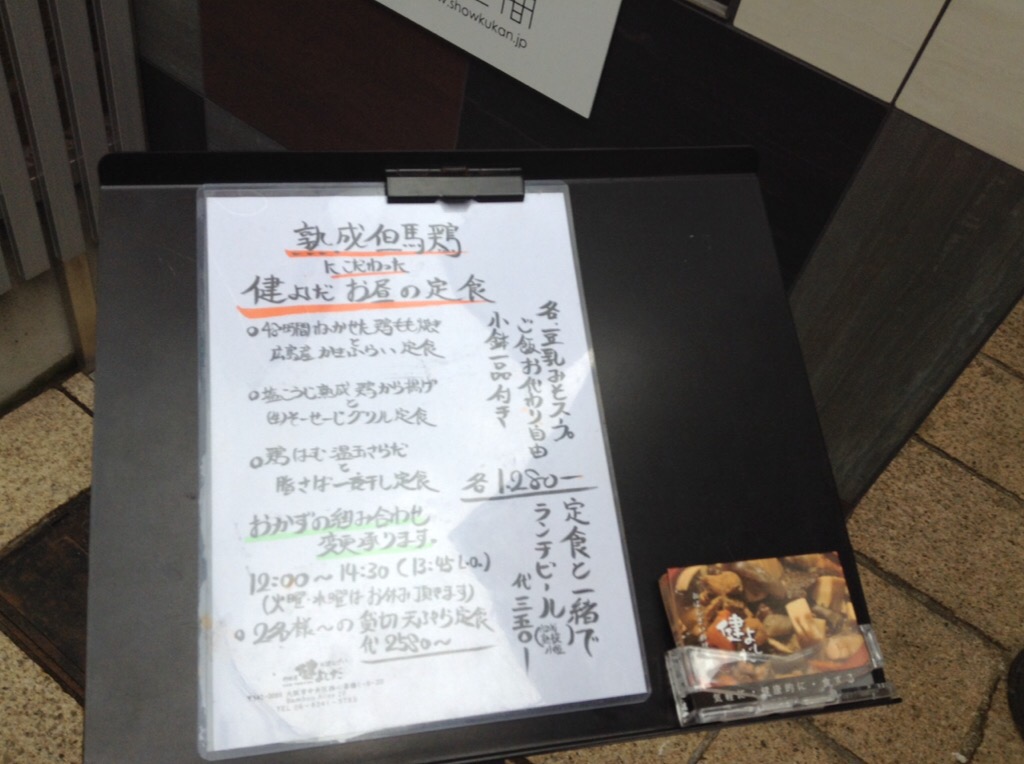 間
w.showkukan.jp
熟成但馬鶏
にこだわった
健よだ お昼の定食
鶏もも焼き
と
広島産かきふらい定食
塩こうじ熟成 鶏から揚げ
と
そーせーじグリル定食
鶏はむ 温玉さらだ
と
豚さば一夜干し定食
おかずの組み合わせ
変更承ります。
12:00〜14:30(13:45 L.O.)
(火曜・水曜はお休み頂きます)
2名様〜の貸切天ぷら定食
代 2580〜
各、豆乳みそスープ。
ご飯お代わり自由
小鉢一品付き
各 1.280ー
定食と一緒で
ランチビール
代 三五〇ー
健よだ
健